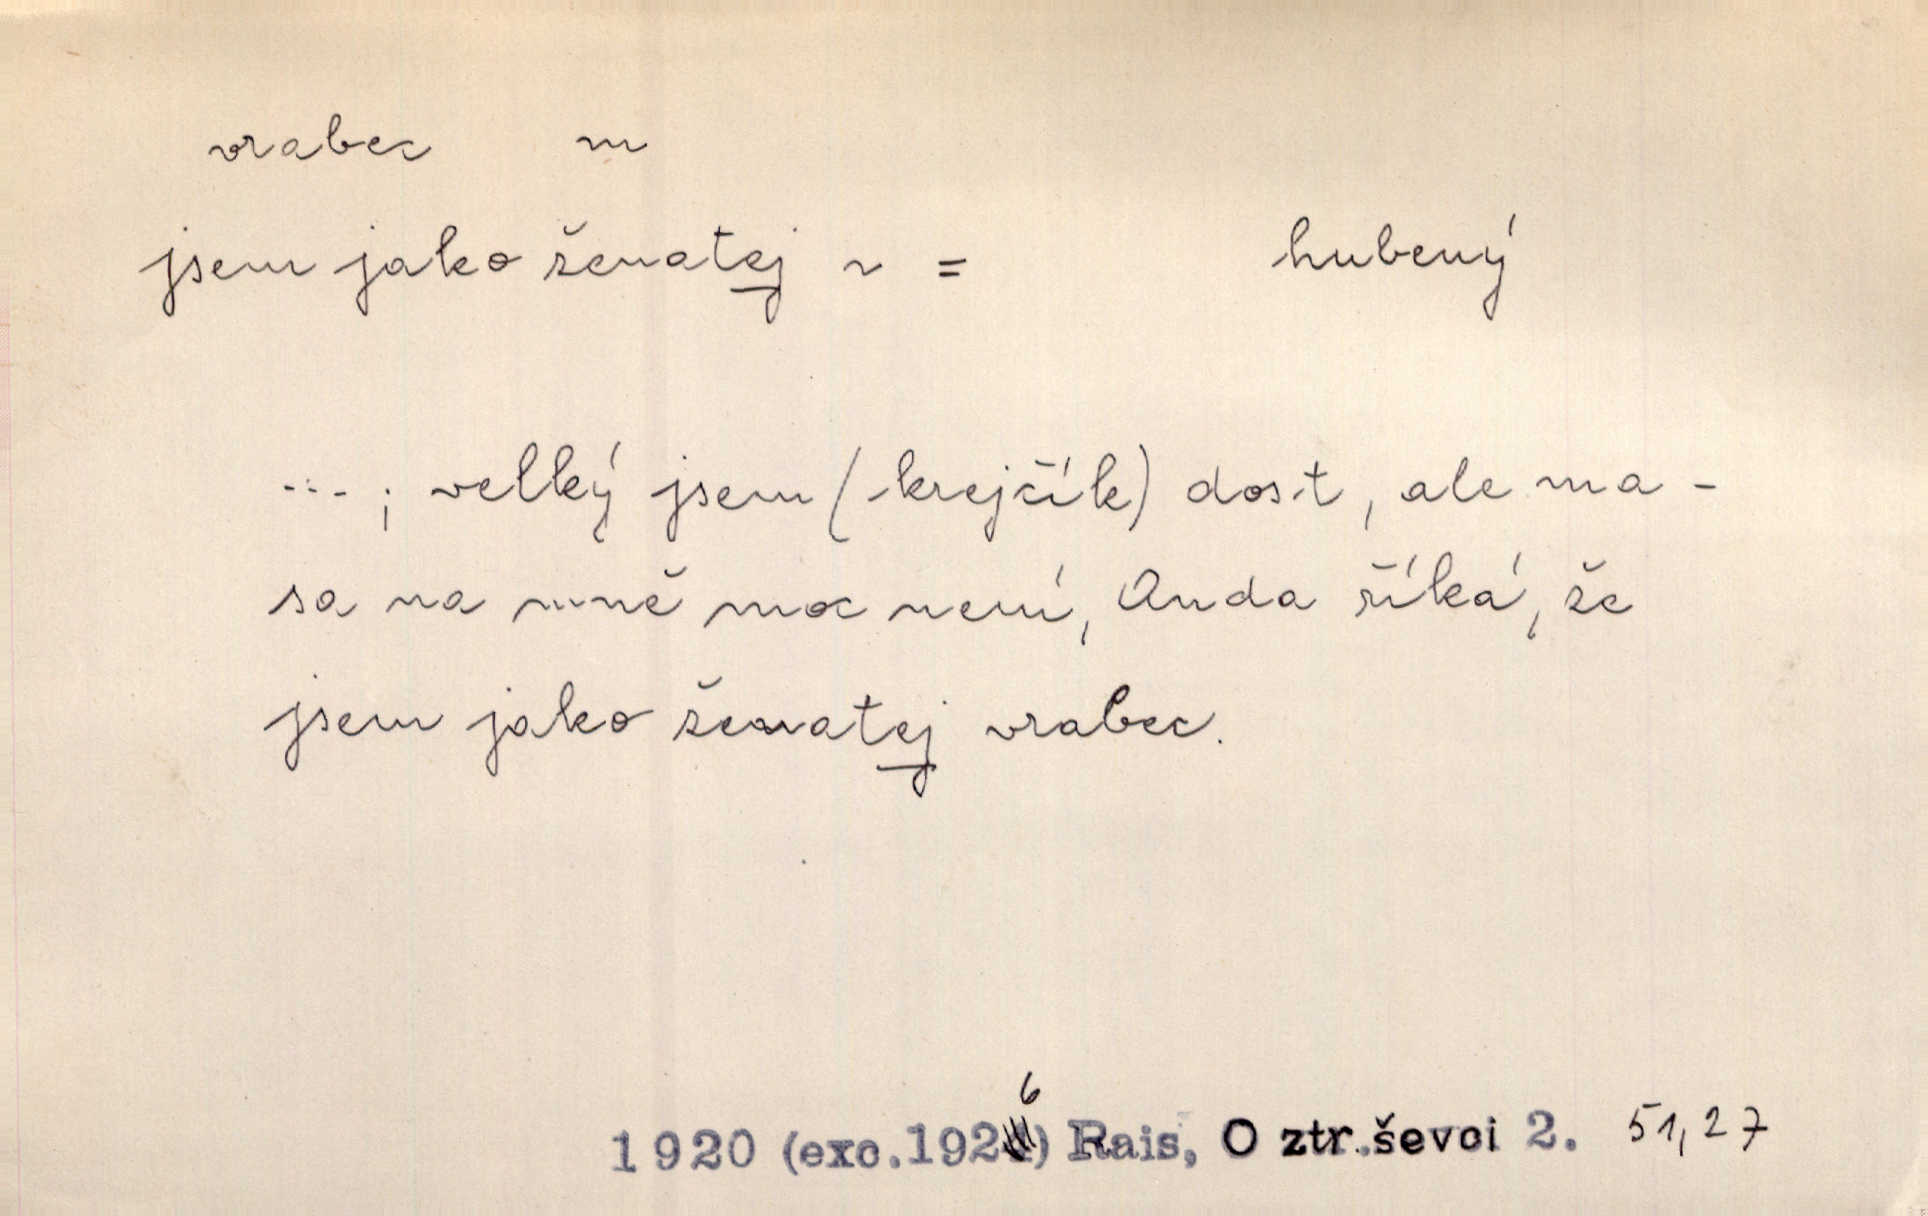 vrabec m
jsem jako ženatej ~ = hubený
...; velký jsem (krejčík) dost, ale ma-
sa na mně moc není, Anda říká, že
jsem jako ženatej vrabec.
1920 (exc.1926) Rais, O ztr.ševci 2. 51,27